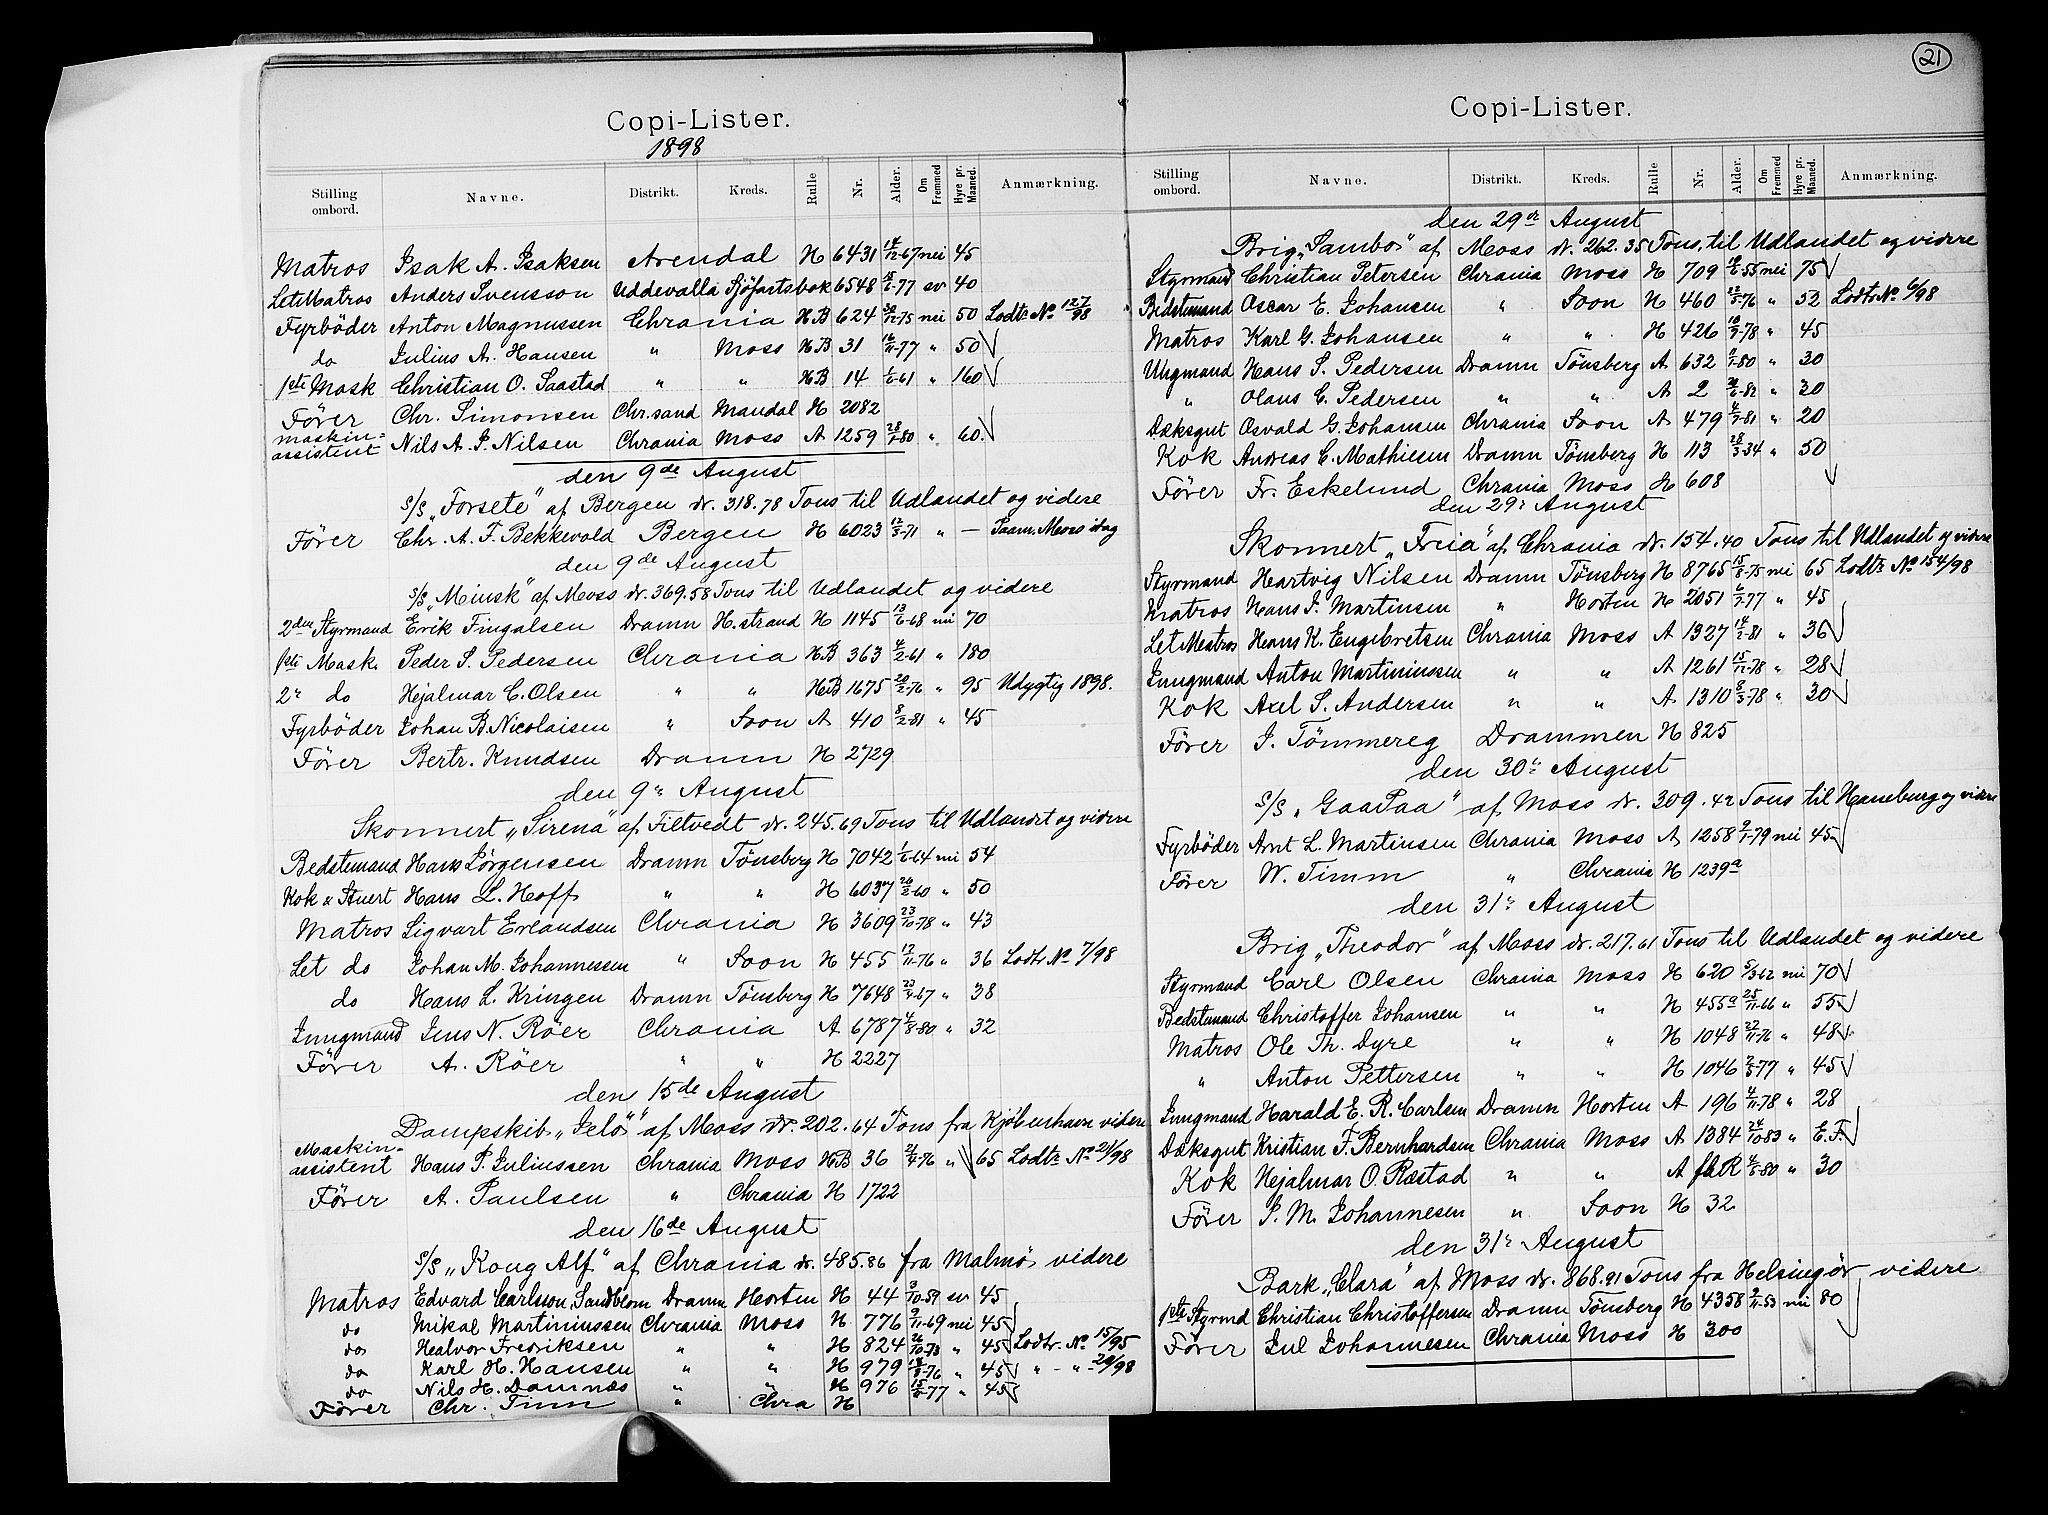 Copi-Lister.
1898
Stilling ombord. Navne. Distrikt. Kreds. Rulle Nr. Alder. Om Fremmed Hyre pr. Maaned. Anmærkning.
Matros Isak A. Isaksen Arendal H 6431 14/12-67 nei 45
Let Matros Anders Svensson Uddevalla Sjöfartsbok 6548 -77 sv 40
Fyrböder Anton Magnussen Chrania HB 624 30/12-75 nei 50 Lodts No 127/98
do Julius A. Hansen " Moss HB 31 16/11-77 " 50
1ste Mask Christian O. Saastad " " HB 14 1/6-61 " 160
Förer Chr. Simonsen Chr.sand Mandal H 2082
maskin-
assistent Nils A. J. Nilsen Chrania Moss A 1259 28/1-80 " 60.
den 9de August
S/S „Forsete" af Bergen dr. 318.78 Tons til Udlandet og videre
Förer Chr. A. F. Bekkevold Bergen H 6023 12/3-71 " — Paam. Moss idag
den 9de August
S/S „Minsk" af Moss dr. 369.58 Tons til Udlandet og videre
2den Styrmand Erik Fingalsen Dramn H.strand H 1145 13/6-68 nei 70
1ste Mask. Peder S. Pedersen Chrania HB 363 4/2-61 " 180
2n do Hejalmar C. Olsen " " HB 1675 20/2-76 " 95 Udygtig 1898.
Fyrböder Johan B. Nicolaisen " Soon A 410 8/2-81 " 45
Förer Bertr. Knudsen Dramn H 2729
den 9n August
Skonnert „Sirena" af Filtvedt dr. 245.69 Tons til Udlandet og videre
Bedstemand Hans Jörgensen Dramn Tönsberg H 7042 1/6-64 nei 54
Kok & Stuert Hans L. Hoff " " H 6037 26/2-60 " 50
Matros Sigvart Erlandsen Chrania H 3609 23/10-78 " 43
Let do Johan M. Johannessen " Soon H 455 17/11-76 " 36 Lodts No 7/98
do Hans L. Kringen Dramn Tönsberg H 7648 23/4-67 " 38
Jungmand Jens N. Röer Chrania A 6787 4/8-80 " 32
Förer A. Röer " " H 2227
den 15de August
Dampskib „Jelö" af Moss dr. 202.64 Tons fra Kjøbenhavn videre
Maskin-
assistent Hans P. Juliussen Chrania Moss HB 36 21/4-76 " 65 Lodts No 21/98
Förer A. Paulsen " Chrania H 1722
den 16de August
S/S „Kong Alf" af Chrania dr. 485.86 fra Malmø videre
Matros Edvard Carlsson Sandblom Dramn Horten H 44 9/10-59 sv 45
do Mikal Martiniussen Chrania Moss H 776 9/11-69 nei 45
do Healvor Fredriksen " " H 824 26/10-73 " 45 Lodtr. No 15/95
do Karl H. Hansen " " H 979 18/8-76 " 45 " - " 20/98
do Nils H. Damnæs " " H 976 15/6-77 " 45
Förer Chr. Timm " Chra H
21
Copi-Lister.
Stilling ombord. Navne. Distrikt. Kreds. Rulle Nr. Alder. Om Fremmed Hyre pr. Maaned. Anmærkning.
den 29de August
Brig „Sambo" af Moss dr. 262.35 Tons, til Udlandet og videre
Styrmand Christian Petersen Chrania Moss H 709 -55 nei 75
Bedstemand Oscar E. Johansen " Soon H 460 22/5-76 " 52 Lodts No 6/98
Matros Karl G. Johansen " " H 426 10/9-78 " 45
Ungmand Hans S. Pedersen Dramn Tönsberg A 632 -80 " 30
" Olaus C. Pedersen " " A 2 20/6-82 " 30
Dæksgut Osvald G. Johansen Chrania Soon A 479 4/7-81 " 20
Kok Andreas C. Mathiesen Dramn Tönsberg H 113 28/3-34 " 50
Förer Fr. Eskelund Chrania Moss H 608
den 29n August
Skonnert „Freia" af Chrania dr. 154.40 Tons til Udlandet og videre
Styrmand Hartvig Nilsen Dramn Tönsberg H 8765 15/8-75 nei 65 Lodts No 154/98
Matros Hans J. Martinsen " Horten H 2051 6/7-77 " 45
Let Matros Hans K. Engebretsen Chrania Moss A 1327 14/2-81 " 36
Jungmand Anton Martiniussen " " A 1261 15/12-78 " 28
Kok Axel S. Andersen " " A 1310 8/3-78 " 30
Förer J. Tömmereg Drammen H 825
den 30n August
S/S „GaaPaa" af Moss dr. 309.42 Tons til Hamburg og videre
Fyrböder Arnt L. Martinsen Chrania Moss A 1258 9/1-79 nei 45
Förer W. Timm " Chrania H 1239a
den 31n August
Brig „Theodor" af Moss dr. 217.61 Tons til Udlandet og videre
Styrmand Carl Olsen Chrania Moss H 620 5/3-62 nei 70
Bedstemand Christoffer Johansen " " H 455a 25/11-66 " 55
Matros Ole Th. Dyre " " H 1048 22/11-76 " 48
" Anton Pettersen " " H 1046 2/5-77 " 45
Jungmand Harald E. R. Carlsen Dramn Horten A 196 4/11-78 " 28
Dæksgut Kristian F. Bernhardsen Chrania Moss A 1384 24/10-83 " E.F.
Kok Hejalmar O. Ræstad " " A fhR 4/5-80 " 30
Förer J. M. Johannesen " Soon H 32
den 31n August
Bark „Clara" af Moss dr. 868.91 Tons fra Helsingör videre
1ste Styrmd Christian Christoffersen Dramn Tönsberg H 4358 9/11-53 nei 80
Förer Jul Johannesen Chrania Moss H 300